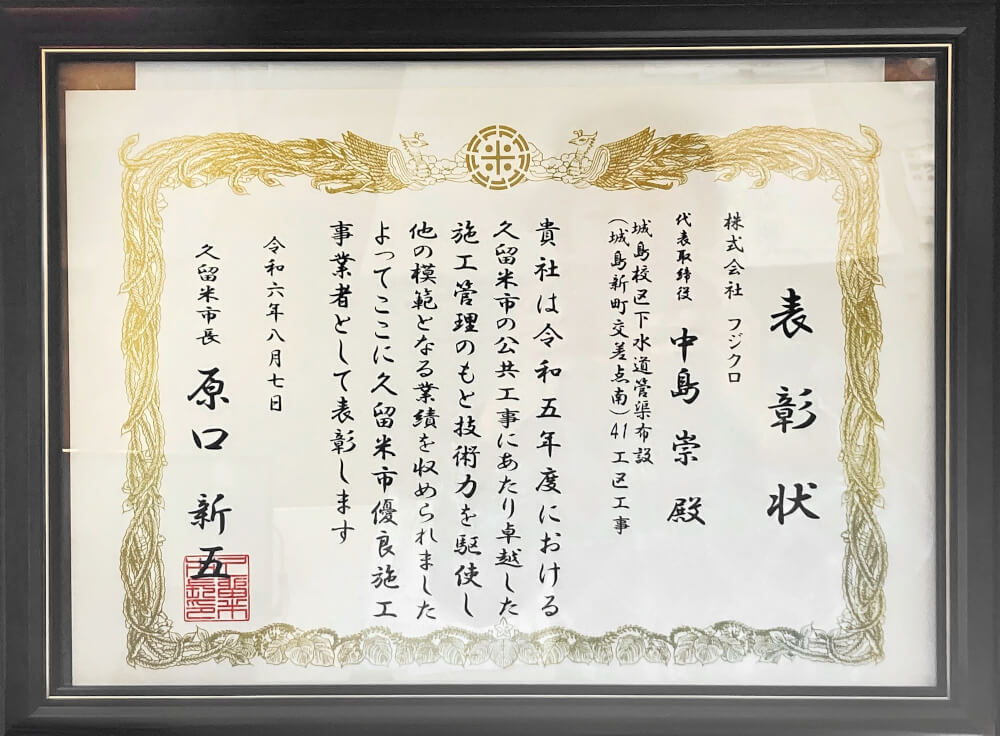 表彰状
株式会社 フジクロ
代表取締役 中島 崇 殿
城島校区下水道管渠布設
(城島新町交差点南)41工区工事
貴社は令和五年度における
久留米市の公共工事にあたり卓越した
施工管理のもと技術力を駆使し
他の模範となる業績を収められました
よってここに久留米市優良施工
事業者として表彰します
令和六年八月七日
久留米市長 原口 新五